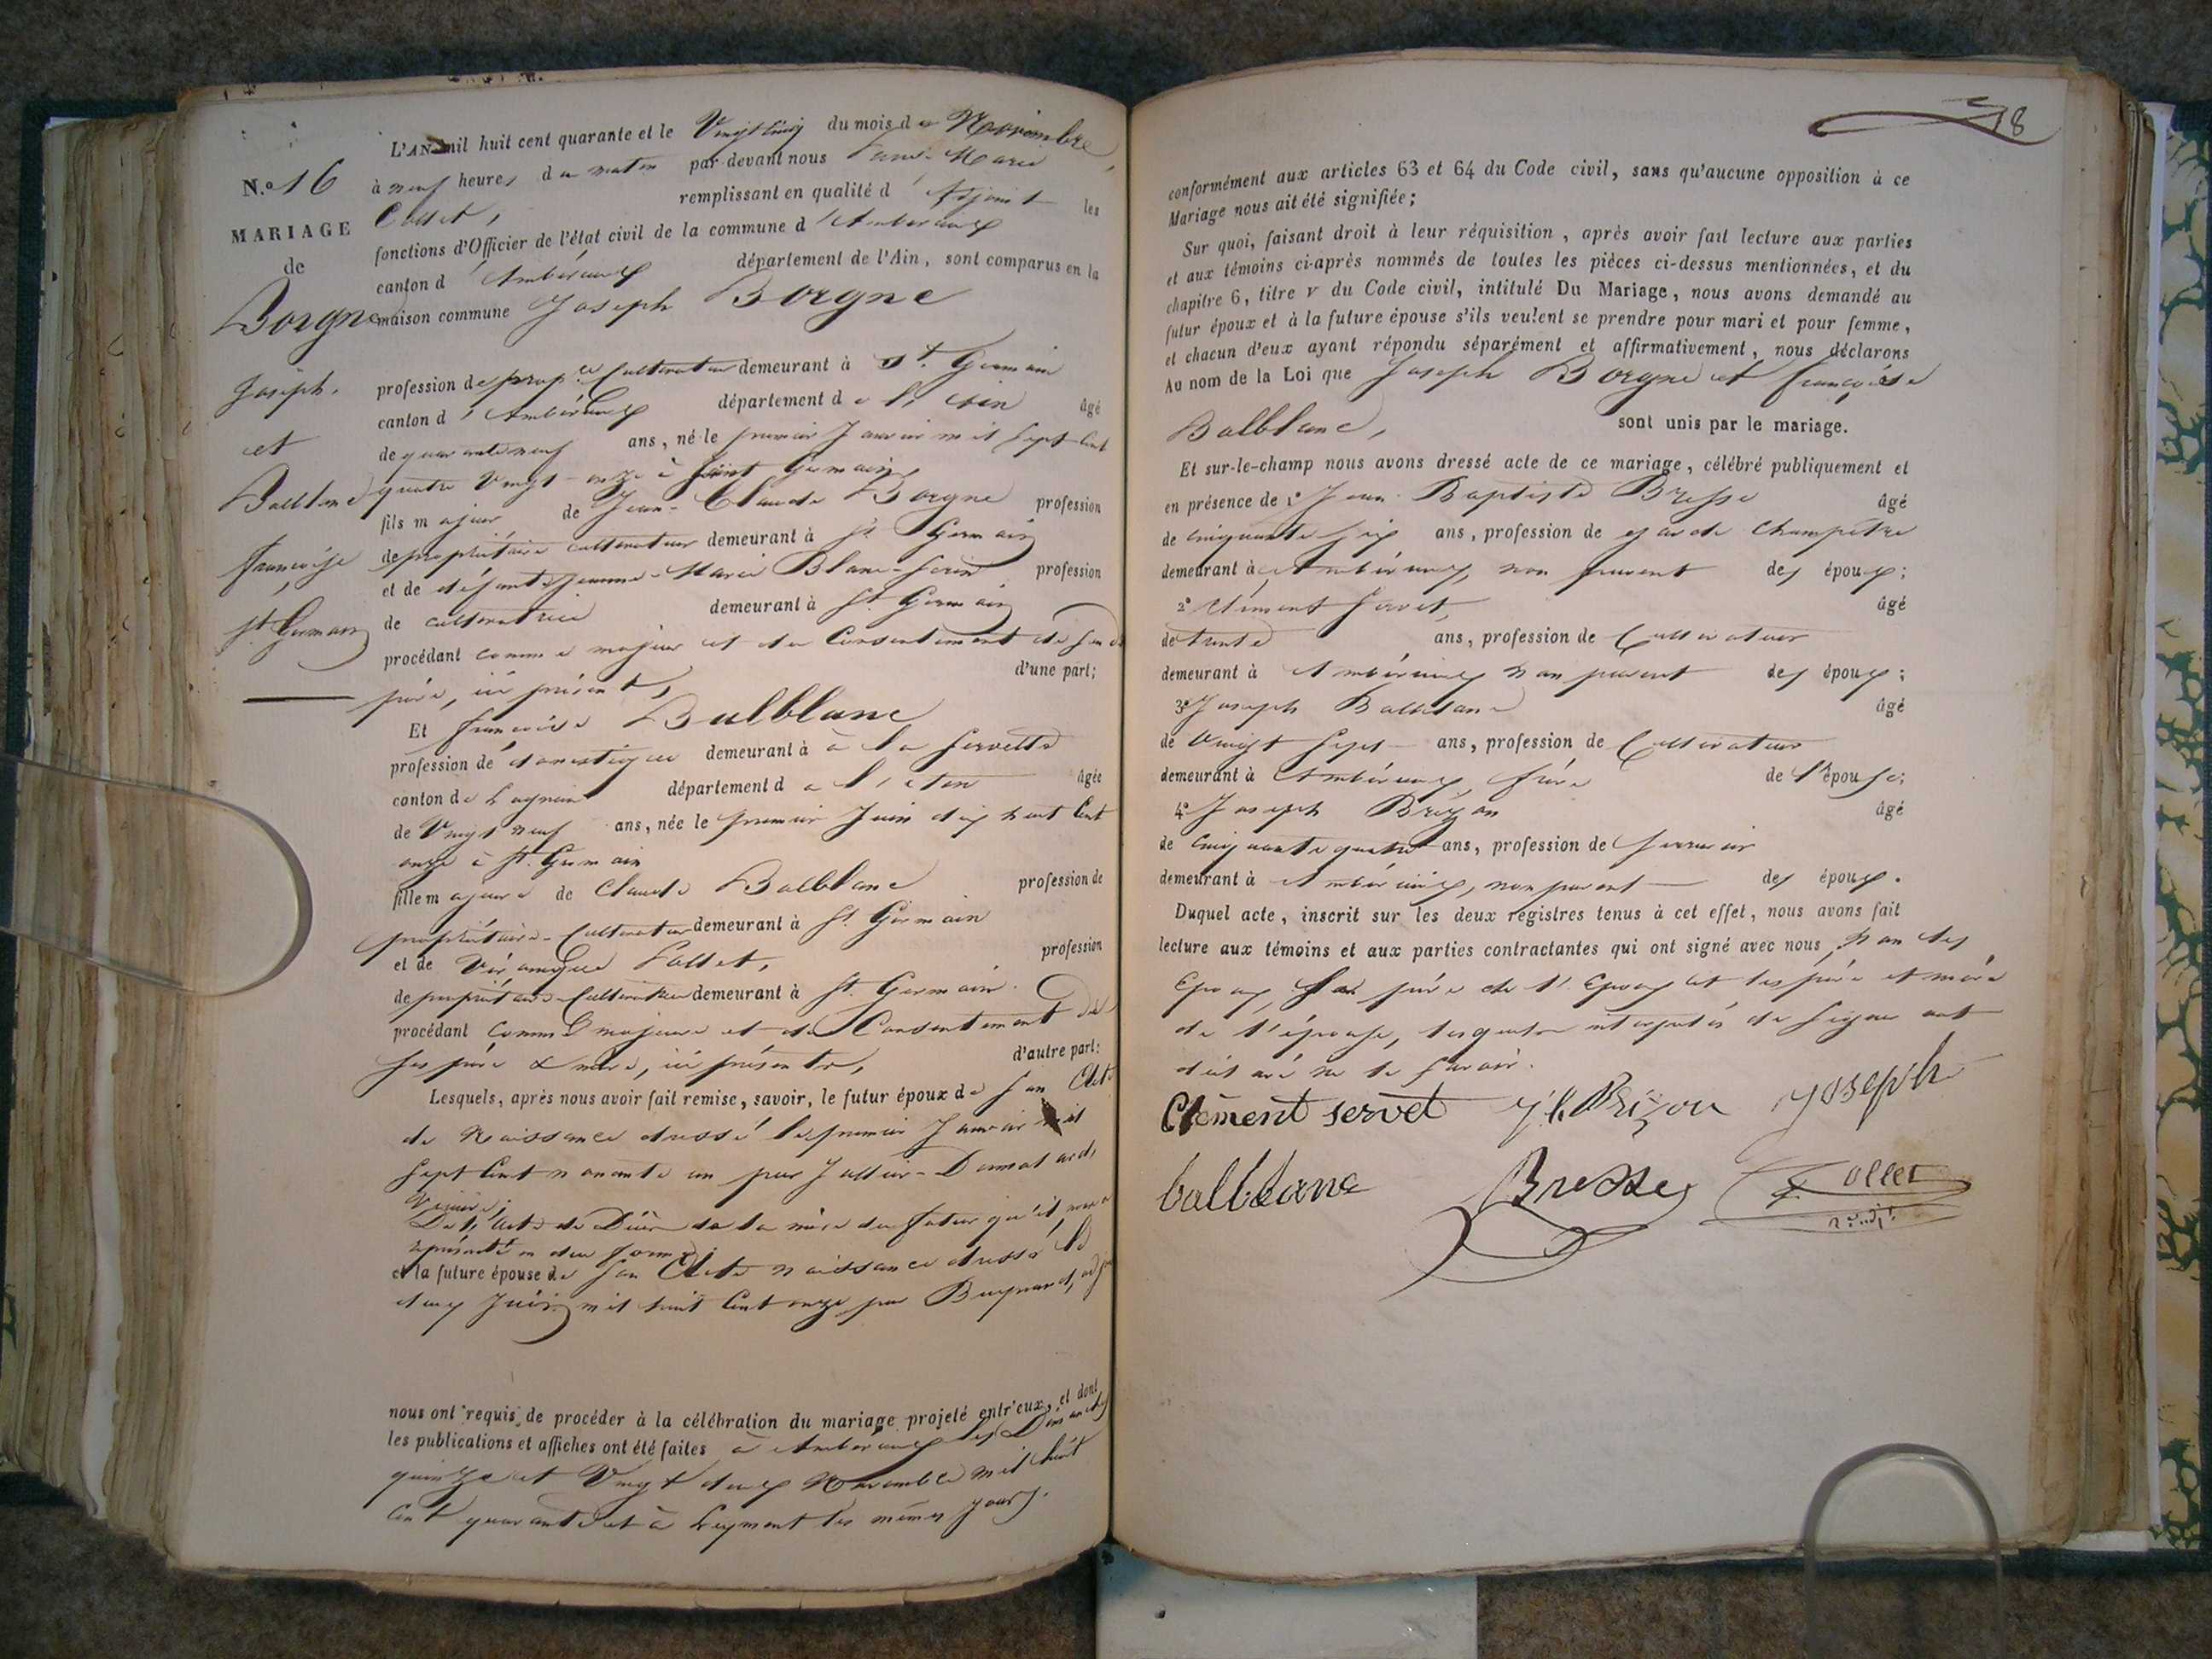 N.o 16
MARIAGE
de
Borgne
Joseph.
et
Balblanc
françoise
St. Germain
L'AN mil huit cent quarante et le Vingt cinq du mois de Novembre,
à neuf heures du matin par devant nous Marie
Collet, remplissant en qualité d'Adjoint les
fonctions d'Officier de l'état civil de la commune d'Ambérieux
canton d'Ambérieux département de l'Ain, sont comparus en la
maison commune Joseph Borgne
profession de prop.re Cultivateur demeurant à St. Germain
canton d'Ambérieux département de l'Ain âgé
de quarante neuf ans, né le premier Janvier mil sept cent
quatre vingt-onze à Saint Germain
fils majeur de Jean-Claude Borgne profession
de propriétaire cultivateur demeurant à St Germain
et de défunte Jeanne-Marie Blanc-ferin profession
de cultivatrice demeurant à St. Germain
procédant comme majeur et du Consentement de son dit
père, ici présent, d'une part;
Et françoise Balblanc
profession de domestique demeurant à à la Servette
canton de Lagnieu département de l'Ain âgée
de Vingt neuf ans, née le premier Juin dix huit Cent
onze à St. Germain
fille majeure de Claude Balblanc profession de
propriétaire-Cultivateur demeurant à St. Germain
et de Véronique Collet, profession
de propriétaire-Cultivatrice demeurant à St. Germain.
procédant Comme majeure et du Consentement de
ses père & mère, ici présents, d'autre part:
Lesquels, après nous avoir fait remise, savoir, le futur époux de son Acte
de Naissance dressé le premier Janvier mil
sept Cent nonante un par Jallier-
De l'Acte de Décès de la mère du futur qu'il nous a
représenté en due forme;
et la future épouse de son Acte naissance dressé le
deux Juin mil huit Cent onze par Buynand, adjt
nous ont requis de procéder à la célébration du mariage projeté entr'eux, et dont
les publications et affiches ont été faites à Ambérieux les Dimanches
quinze et Vingt deux Novembre mil huit
Cent quarante et à Leyment les mêmes jours.
18
conformément aux articles 63 et 64 du Code civil, sans qu'aucune opposition à ce
Mariage nous ait été signifiée;
Sur quoi, faisant droit à leur réquisition, après avoir fait lecture aux parties
et aux témoins ci-après nommés de toutes les pièces ci-dessus mentionnées, et du
chapitre 6, titre V du Code civil, intitulé Du Mariage, nous avons demandé au
futur époux et à la future épouse s'ils veulent se prendre pour mari et pour femme,
et chacun d'eux ayant répondu séparément et affirmativement, nous déclarons
Au nom de la Loi que Joseph Borgne et françoise
Balblanc, sont unis par le mariage.
Et sur-le-champ nous avons dressé acte de ce mariage, célébré publiquement et
en présence de 1º Jean-Baptiste Bresse âgé
de cinquante six ans, profession de garde Champetre
demeurant à Ambérieux, non parent des époux;
2º Clément Servet, âgé
de trente ans, profession de Cultivateur
demeurant à Ambérieux non parent des époux;
3º Joseph Balblanc âgé
de Vingt Sept ans, profession de Cultivateur
demeurant à Ambérieux, frère de l'épouse;
4º Joseph Brizon âgé
de Cinquante quatre ans, profession de Serrurier
demeurant à Ambérieux, non parent des époux.
Duquel acte, inscrit sur les deux registres tenus à cet effet, nous avons fait
lecture aux témoins et aux parties contractantes qui ont signé avec nous, Non les
Epoux, le père de l'Epoux et les père et mère
de l'épouse, lesquels interpellés de signer ont
déclaré ne le savoir.
Clément servet J. h. Brizon Joseph
balblanc Bresse Collet